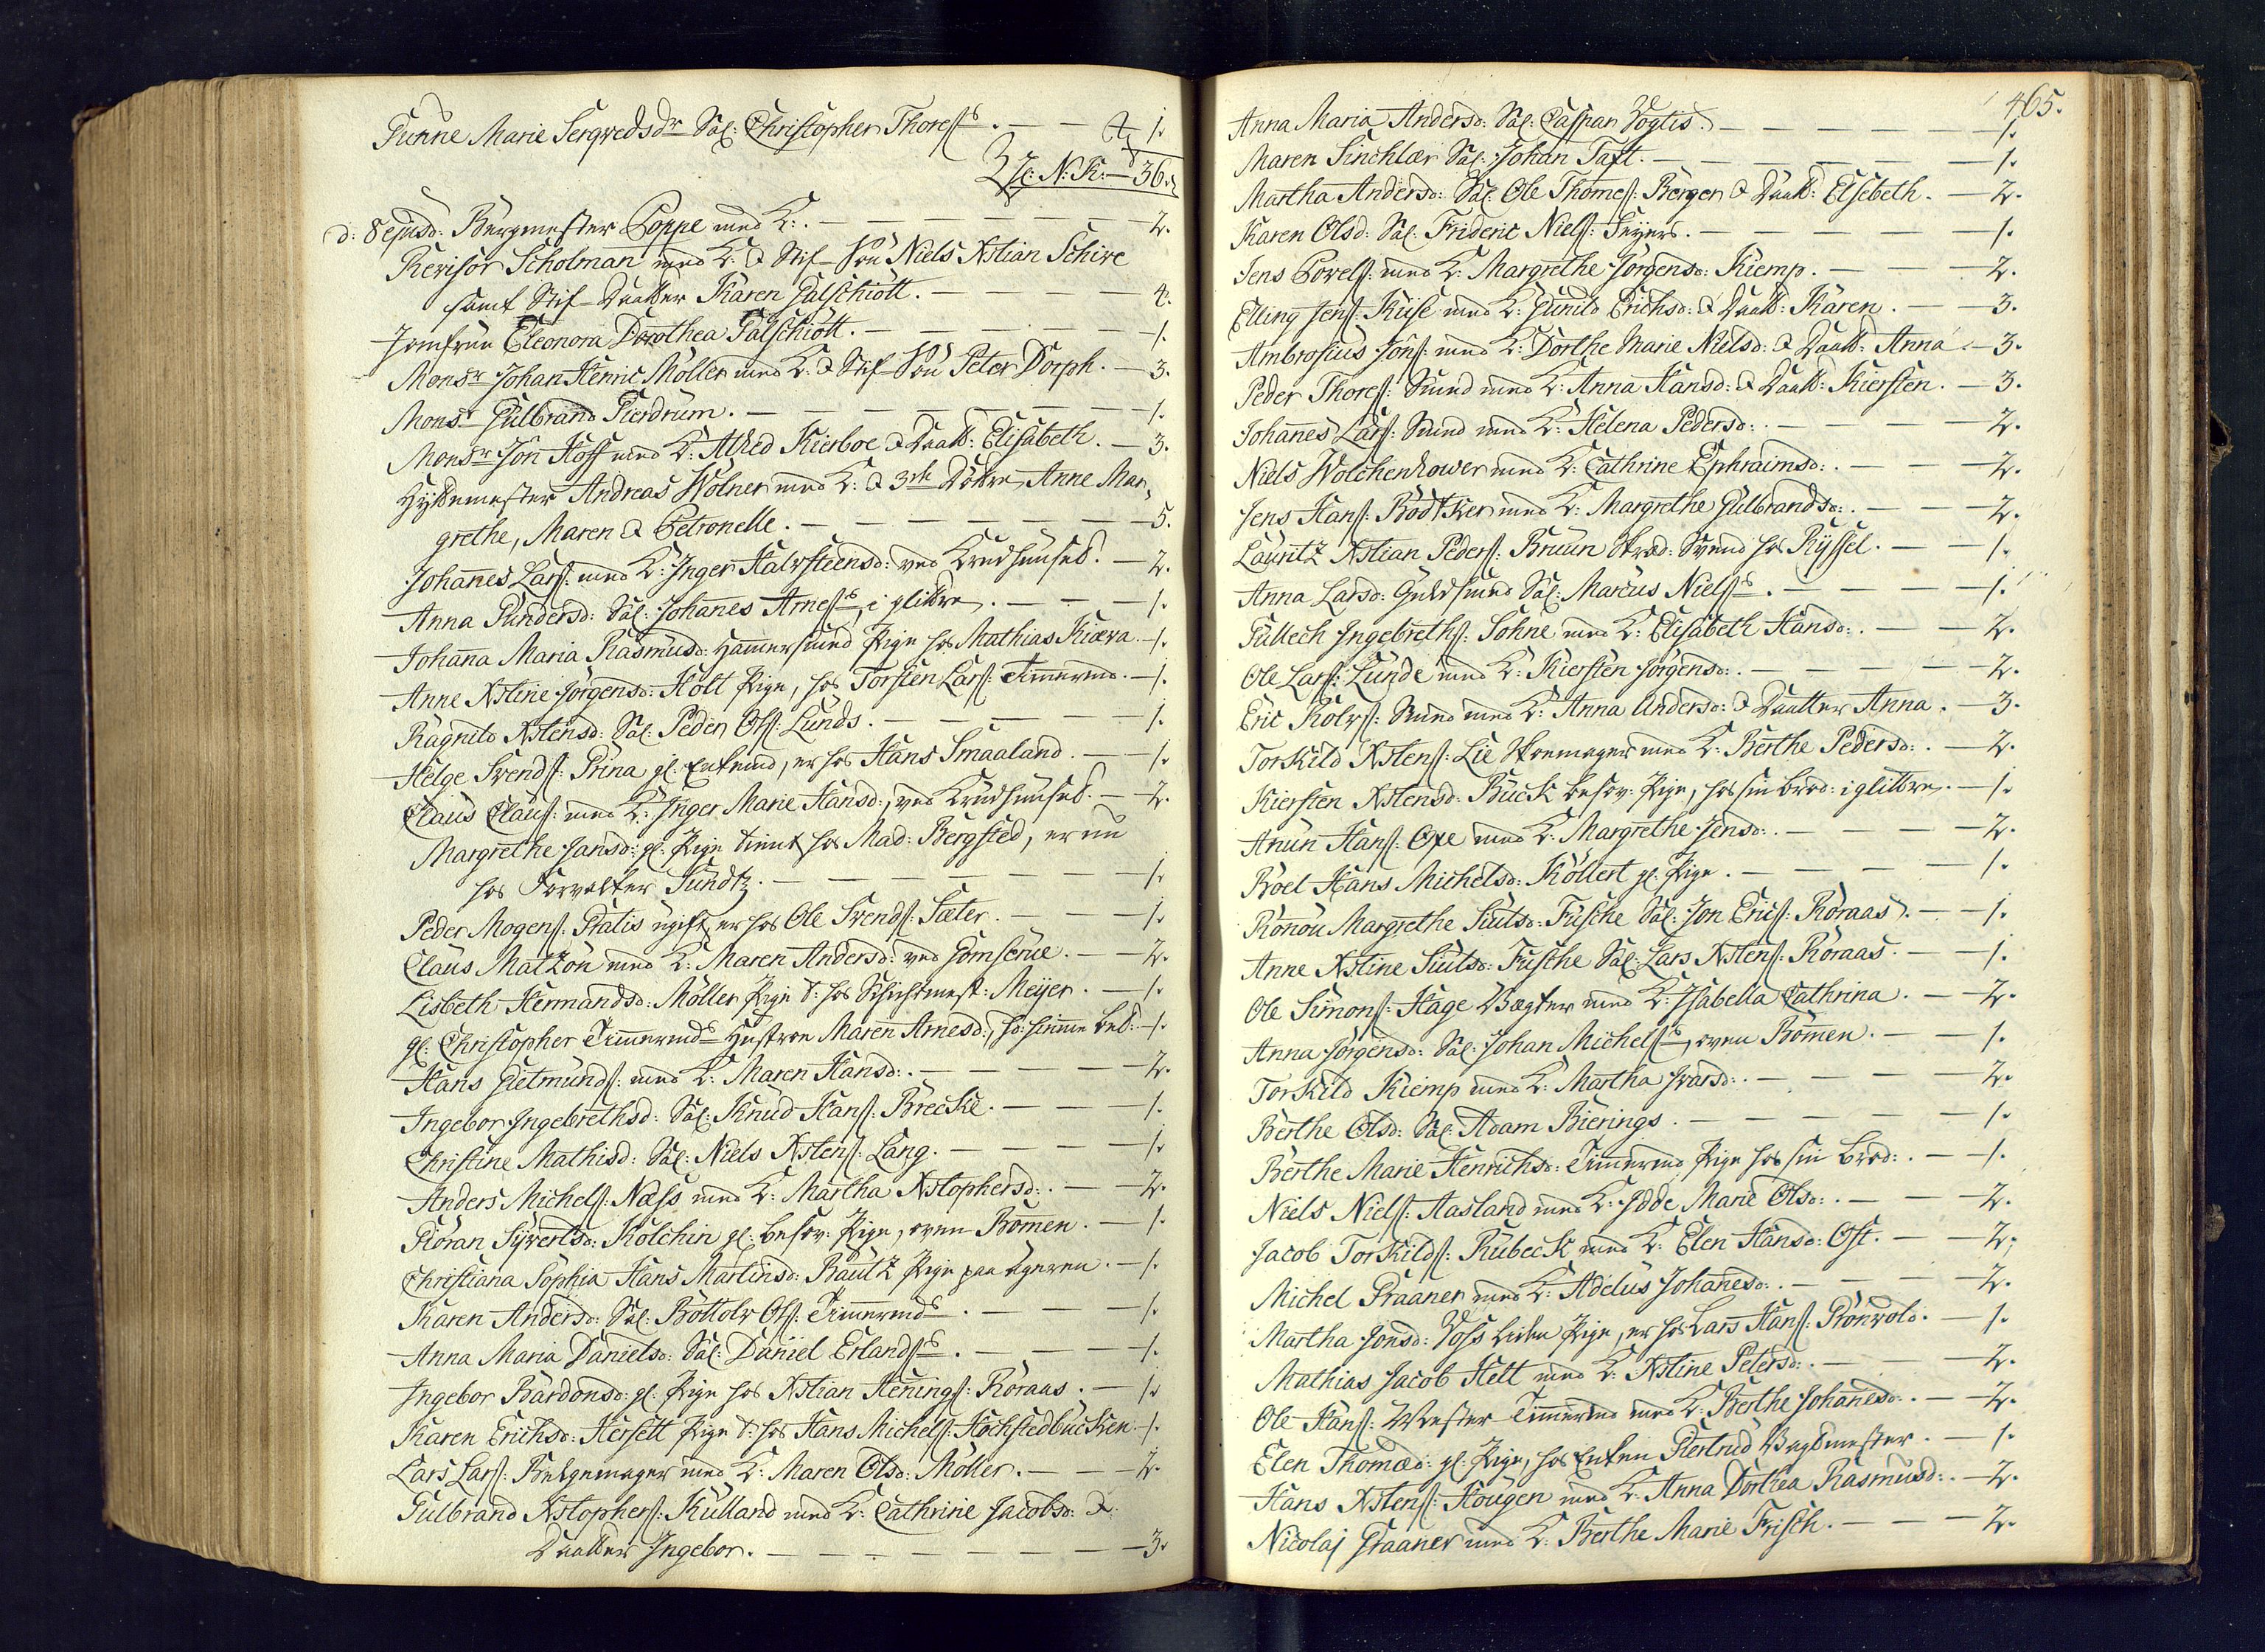 Gunne Marie Sergvedsdr Sal: Christopher Thoress . — — 1.
N: K: — 36.
d: 8 ejusd: Bergmester Poppe med K: . — — — — — — 2.
Revisor Scholman med K: & Stif-Søn Niels Xstian Schive
samt Stif-Daatter Karen Galschiött. — — — — 4.
Jomfrue Eleonora Dorothea Galschiött. — — — — — 1.
Monsr Johan Henric Möller med K: & Stif-Søn Peter Dorph. — 3.
Monsr Gulbrand Gierdrum. — — — — — — 1.
Monsr Jón Hoff med K: Alhed Kierboe & Daatt: Elisabeth. — 3.
Hyttemester Andreas Wölner med K: & 3de Döttre, Anne Mar,
grethe, Maren & Petronelle. — — — — — — — 5.
Johannes Larss: med K: Inger Halvsteensd: ved Krudhuuset. — 2.
Anna Gundersd: Sal: Johannes Arness i glittre. — — — 1.
Johanna Maria Rasmusd: Hammersmed Pige hos Mathias Kiæra. — 1.
Anne Xstine Jörgensd: Holt Pige, hos Torsten Larss: Timmermd. — 1.
Ragnild Xstensd: Sal: Peder Olss: Lunds. — — — — 1.
Helge Svendss: Prina gl: Enkemd, er hos Hans Smaaland. — — 1.
Claus Clauss: med K: Inger Marie Hansd:, ved Krudhuuset. — 2.
Margrethe Hansd: gl: Pige tient hos Mad: Bergsted, er nu
hos Forvalter Sundtz. — — — — — — 1.
Peder Mogenss: Gratis ugift er hos Ole Svendss: Sæter. — — 1.
Claus Matzön med K: Maren Andersd: ved Gomserue. — — 2.
Lisbeth Hermandsd: Möller Pige t: hos Schichtmest: Meyer. — 1.
gl: Christopher Timmermds Hustroe Maren Arnesd:, — 1.
Hans Gietmundss: med K: Maren Hansd: . — — — — 2.
Ingebor Ingebrethsd: Sal: Knud Hanss: Brecke. — — — 1.
Christine Mathisd: Sal: Niels Xstenss: Lang. — — — 1.
Anders Michelss: Næss med K: Martha Xstophersd: . — — 2.
Giöran Syvertsd: Kolchin gl: besov: Pige, oven Bommen. — 1.
Christiana Sophia Hans Martinsd: Bautz Pige paa Ageren. — 1.
Karen Andersd: Sal: Bottolv Olss: Timmermds . — — — 1.
Anna Maria Danielsd: Sal: Daniel Erlandss . — — — 1.
Ingebor Bardonsd: gl: Pige hos Xstian Hennings: Röraas. — 1.
Karen Erichsd: Hersett Pige t: hos Hans Michelss: Hochstedbucken. — 1.
Lars Larss: Belgemager med K: Maren Olsd: Möller. — — 2.
Gulbrand Xstopherss: Kulland med K: Cathrine Jacobsd: &
Daatter Ingebor. — — — — — — — 3.
465.
Anna Maria Andersd: Sal: Caspar Vogtis. — — — — 1.
Maren Sinchlær Sal: Johan Taft. — — — — — 1.
Martha Andersd: Sal: Ole Thomess: Berger & Daatt: Elsebeth. — 2.
Karen Olsd: Sal: Frideric Nielss: Seyers. — — — — 1.
Jens Povelss: med K: Margrethe Jörgensd: Kiemp. — — 2.
Elling Jenss: Kuse med K: Gunild Erichsd: & Daatt: Karen. — 3.
Ambrosius Jönss: med K: Dorthe Marie Nielsd: & Daatt: Anna. — 3.
Peder Thoress: Smed med K: Anna Hansd: & Daatt: Kiersten. — 3.
Johannes Larss: Smed med K: Helena Pedersd: . — — — 2.
Niels Wolchenhower med K: Cathrine Ephraimsd: . — — 2.
Jens Hanss: Bödtker med K: Margrethe Gulbrandsd: . — — 2.
Lauritz Xstian Pederss: Bruun Skræd: Svend hos Ryssel. — 1.
Anna Larsd: Guldsmed Sal: Marcus Nielss . — — — 1.
Gullech Ingebrethss: Sohne med K: Elisabeth Hansd: . — — 2.
Ole Larss: Lunde med K: Kiersten Jörgensd: . — — — — 2.
Eric Rolvss: Smed med K: Anna Andersd: & Daatter Anna. — 3.
Torkild Xstenss: Lie Skoemager med K: Berthe Pedersd: . — 2.
Kiersten Xstensd: Buck besov: Pige, hos sin brod: i glittre. — 1.
Anun Hanss: Oxe med K: Margrethe Jensd: . — — — 2.
Boel Hans Michelsd: Köllert gl: Pige. — — — — 1.
Ronou Margrethe Siulsd: Fusche Sal: Jon Ericss: Röraas. — 1.
Anne Xstine Siulsd: Fusche Sal: Lars Xstenss: Röraas. — — 1.
Ole Simonss: Hage Vægter med K: Isabella Cathrina. — 2.
Anna Jörgensd: Sal: Johan Michelss, oven Bommen. — — 1.
Torkild Kiemp med K: Martha Ivarsd: . — — — — 2.
Berthe Olsd: Sal: Adam Bierings. — — — — — 1.
Berthe Marie Henrichsd: Timmermd Pige hos sin brod: . — 1.
Niels Nielss: Aasland med K: Idde Marie Olsd: . — — 2.
Jacob Torkildss: Rubeck med K: Elen Hansd: Ost. — — 2.
Michel Graaner med K: Adelus Johanesd: . — — — — 2.
Martha Jonsd: Voss liden Pige, er hos Lars Hanss: Grönvold. — 1.
Mathias Jacob Hett med K: Xstine Petersd: . — — — 2.
Ole Hanss: Wæster Timmermd med K: Berthe Johanesd: . — 2.
Elen Thomæd: gl: Pige, hos Enken Giertrud Vagtmester. — 1.
Hans Xstenss: Hougen med K: Anna Dorthea Rasmusd: . — 2.
Nicolaj Graaner med K: Berthe Marie Frisch. — — — 2.